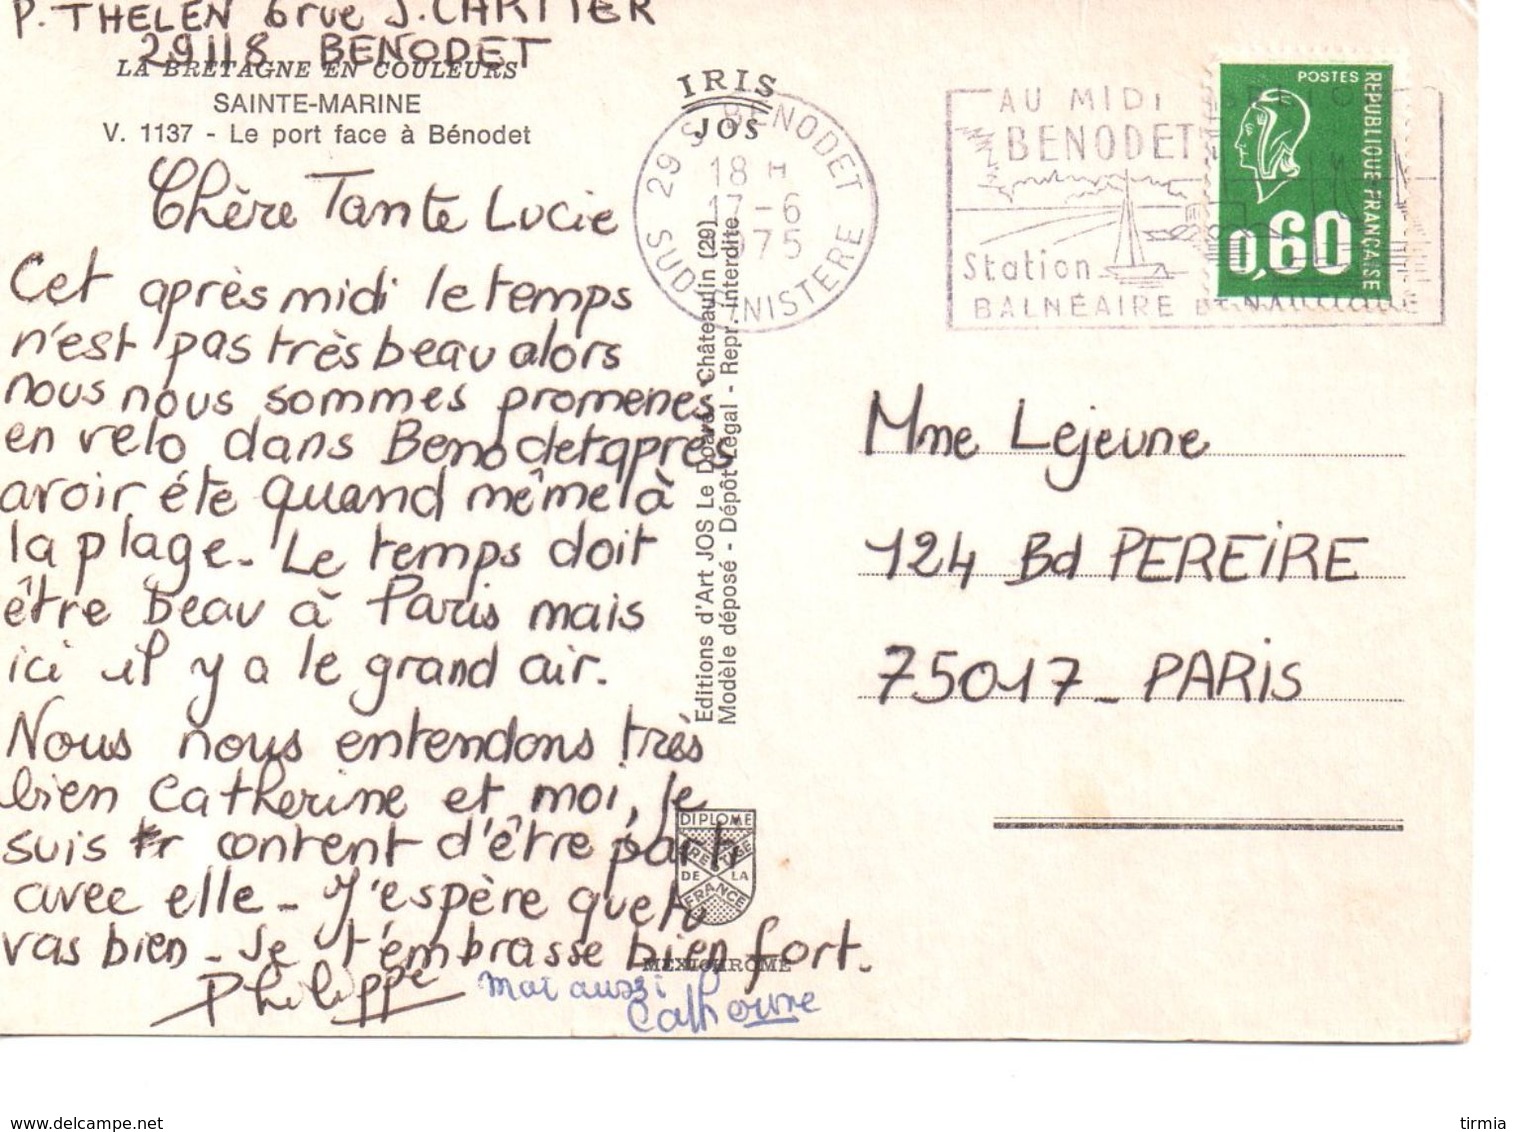 P. THELEN 6 rue J. CARTIER
29118 BENODET
LA BRETAGNE EN COULEURS
SAINTE-MARINE
V. 1137 - Le port face à Bénodet
IRIS
JOS
29 S BENODET
18 H
17-6
1975
SUD FINISTERE
AU MIDI
BENODET
Station
BALNÉAIRE Et NAUTIQUE
POSTES
REPUBLIQUE FRANÇAISE
0,60
Chère Tante Lucie
Cet après midi le temps
n'est pas très beau alors
nous nous sommes promenés
en velo dans Benodet après
avoir été quand même à
la plage. Le temps doit
être beau à Paris mais
ici il y a le grand air.
Nous nous entendons très
bien Catherine et moi, je
suis tr content d'être parti
avec elle - J'espère que tu
vas bien - Je t'embrasse bien fort.
Philippe
moi aussi
Catherine
Editions d'Art JOS Le Doaré - Châteaulin (29)
Modèle déposé - Dépôt Légal - Repr. interdite
DIPLOME
PRESTIGE
DE LA
FRANCE
MEXICHROME
Mme Lejeune
124 Bd PEREIRE
75017 - PARIS
delcampe.net
tirmia